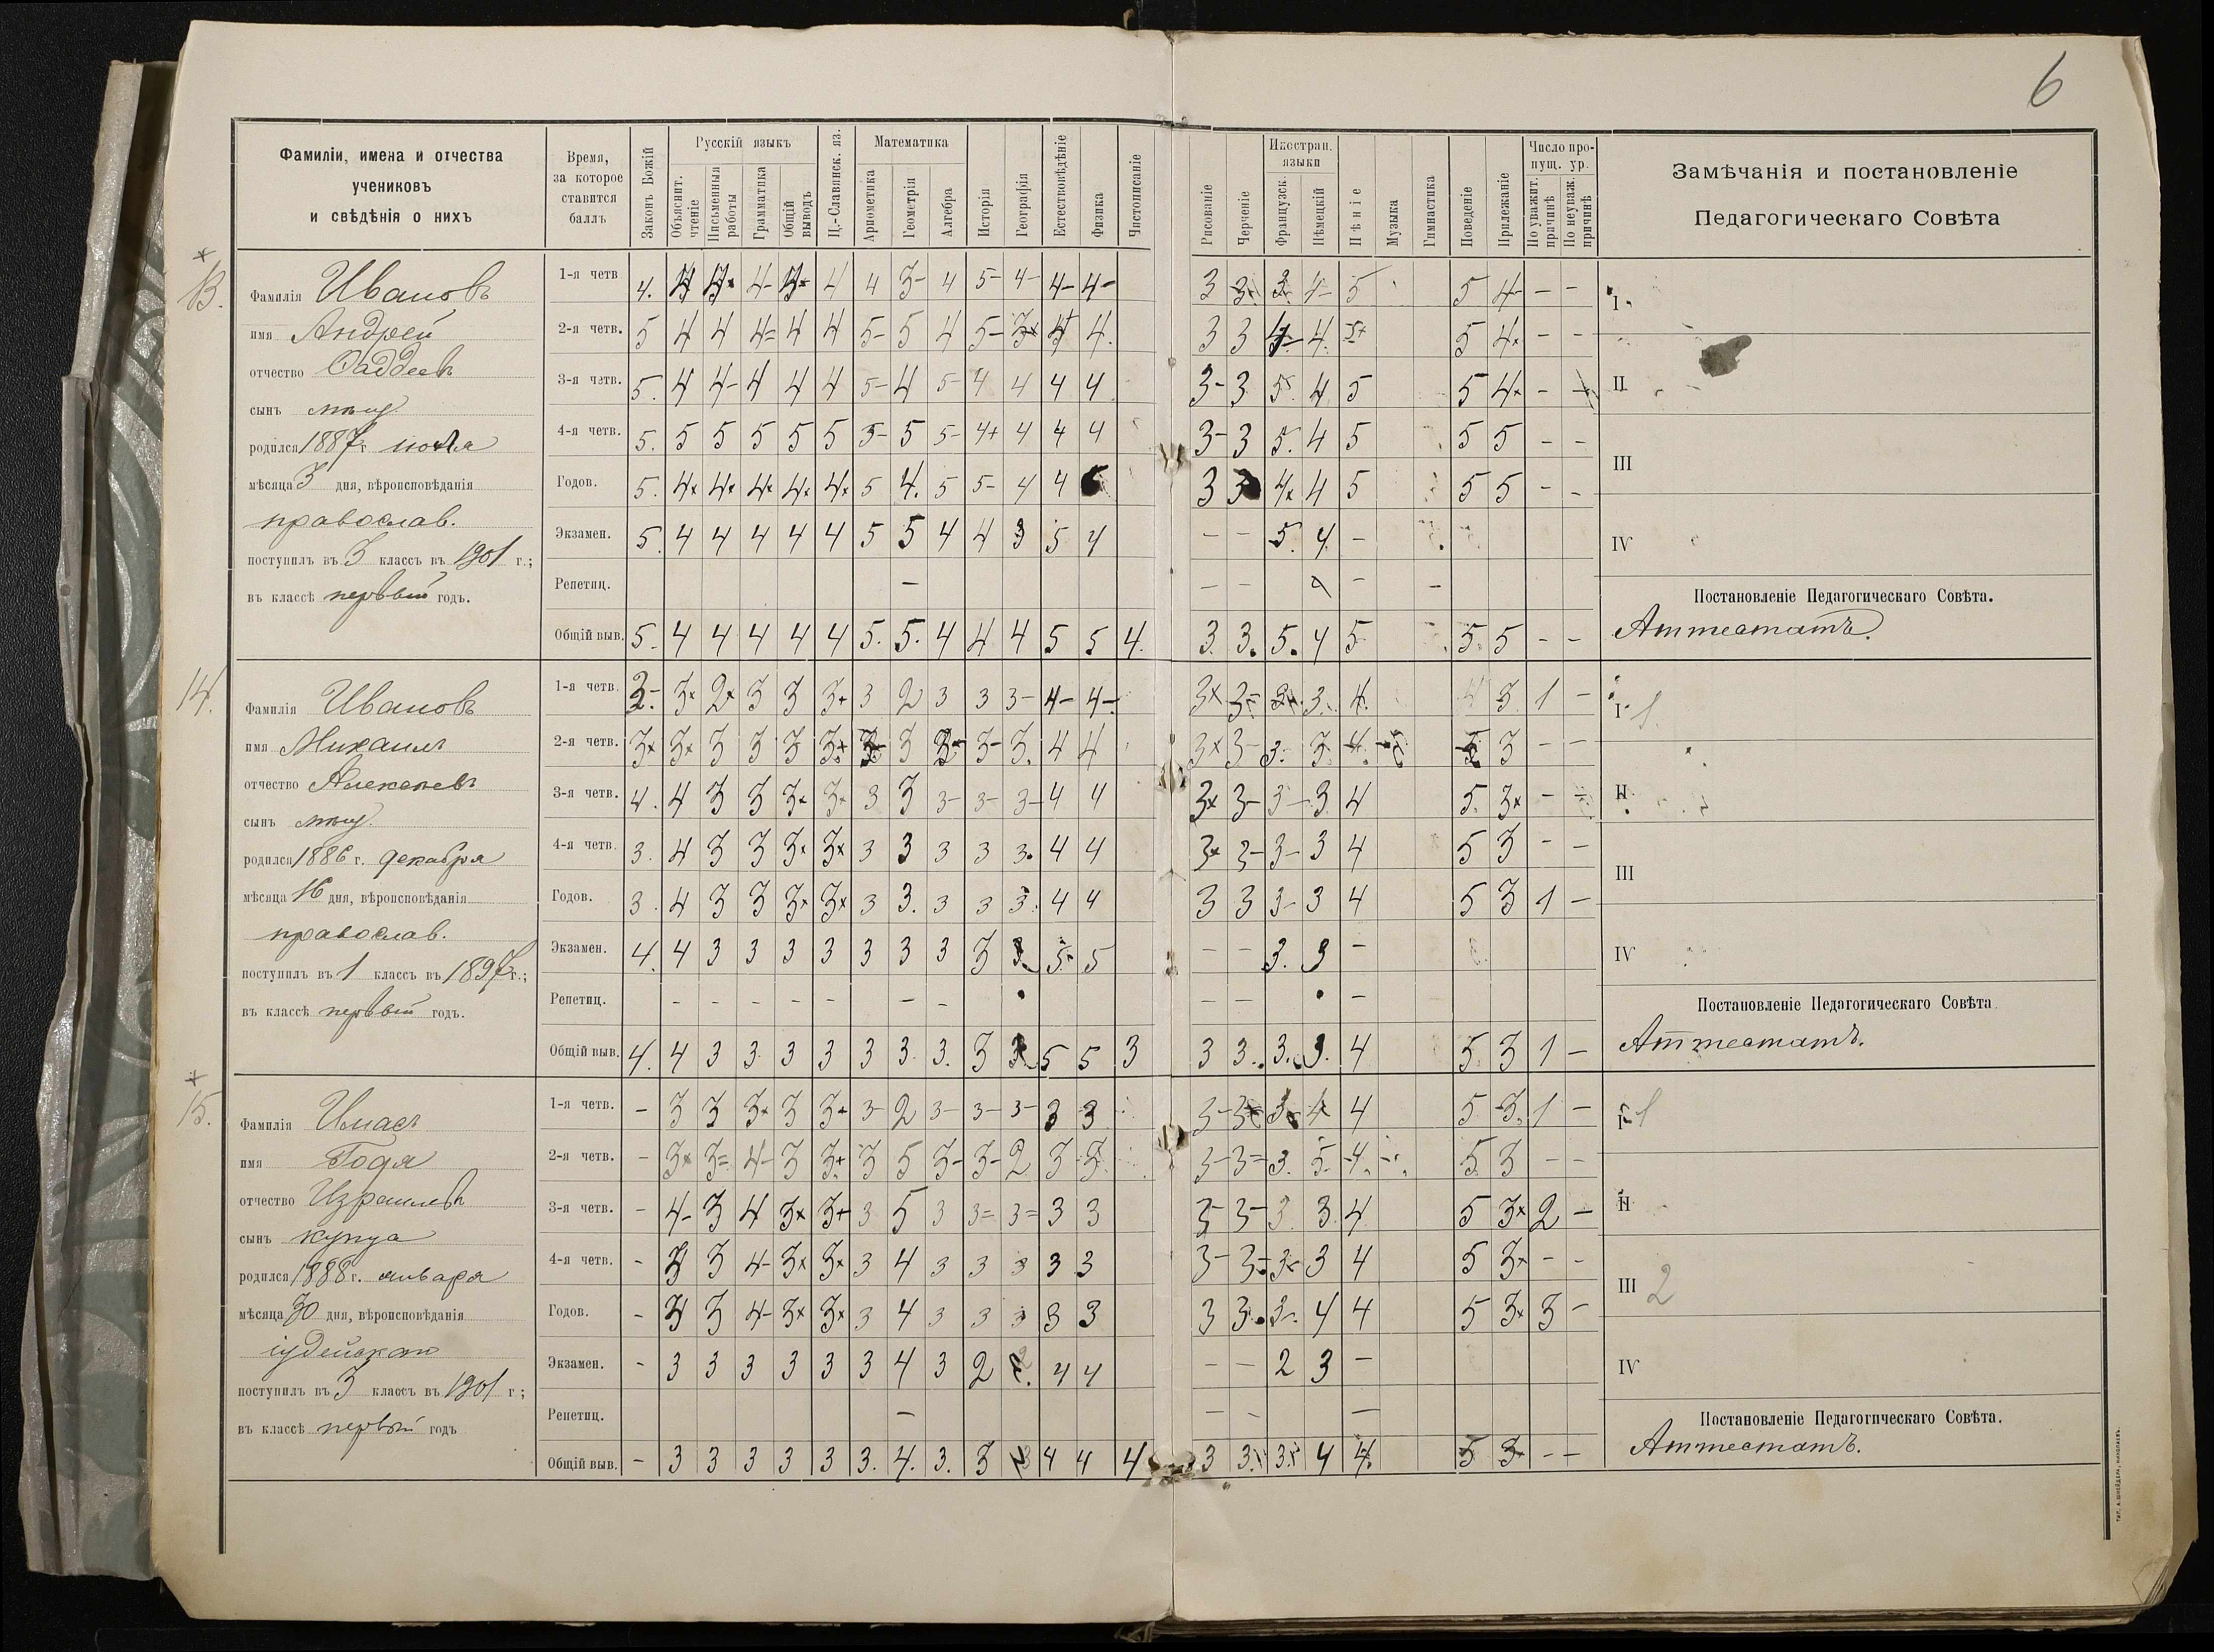 6
Фамиліи, имена и отчества
учениковъ
и свѣдѣнія о нихъ
Время,
за которое
ставится
баллъ
Законъ Божій
Русскій языкъ
Объяснит. чтеніе
Письменныя работы
Грамматика
Общій выводъ
Ц.-Славянск. яз.
Математика
Ариѳметика
Геометрія
Алгебра
Исторія
Географія
Естествовѣдѣніе
Физика
Чистописаніе
Рисованіе
Черченіе
Иностран. языки
Французск.
Нѣмецкій
Пѣніе
Музыка
Гимнастика
Поведеніе
Прилежаніе
Число пропущ. ур.
По уважит. причинѣ
По неуваж. причинѣ
Замѣчанія и постановленіе
Педагогическаго Совѣта
13.
Фамилія Ивановъ
имя Андрей
отчество Фаддеевъ
сынъ мѣщ.
родился 1887 г. іюля
мѣсяца 3 дня, вѣроисповѣданія
православ.
поступилъ въ 3 классъ въ 1901 г.;
въ классѣ первый годъ.
1-я четв. 4. 4 3- 4 5- 4- 4- 4- 3 4- 5 5 4- - -
2-я четв. 5 4 4 4= 4 4 5- 5 4 5- 4. 3 3 4. 5+ 5 4× - -
3-я четв. 5. 4 4- 4 4 4 5- 4 5- 4 4 4 4 3- 3 5. 4 5 5 4× - -
4-я четв. 5. 5 5 5 5 5 5- 5 5- 4+ 4 4 4 3- 3 5. 4 5 5 5 - -
Годов. 5. 4× 4× 4× 4× 4× 5 4. 5 5- 4 4 3 3 4× 4 5 5 5 - -
Экзамен. 5. 4 4 4 4 4 5 5 4 4 3 5 4 - - 5. 4. -
Репетиц. - - - - -
Общій выв. 5. 4 4 4 4 4 5. 5. 4 4 4 5 5 4. 3. 3. 5. 4 5 5. 5 - -
I
II
III
IV
Постановленіе Педагогическаго Совѣта.
Аттестатъ.
14.
Фамилія Ивановъ
имя Михаилъ
отчество Алексѣевъ
сынъ мѣщ.
родился 1886 г. декабря
мѣсяца 16 дня, вѣроисповѣданія
православ.
поступилъ въ 1 классъ въ 1897 г.;
въ классѣ первый годъ.
1-я четв. 3- 3× 2× 3 3 3+ 3 2 3 3 3- 4- 4- 3× 3- 3. 4. 3. 1 -
2-я четв. 3× 3× 3 3 3 3+ 3 3- 3. 4 4 3× 3- 3. 3. 4. 5 3 - -
3-я четв. 4. 4 3 3 3× 3× 3 3 3- 3- 3- 4 4 3× 3- 3- 3. 4 5. 3× - -
4-я четв. 3. 4 3 3 3× 3× 3 3 3 3 3. 4 4 3× 3- 3- 3 4 5 3 - -
Годов. 3. 4 3 3 3× 3× 3 3. 3 3 3. 4 4 3 3 3- 3 4 5 3 1 -
Экзамен. 4. 4 3 3 3 3 3 3 3 3 3 5. 5 - - 3. 3 -
Репетиц. - - - - - - - - - -
Общій выв. 4. 4 3 3. 3 3 3 3. 3. 3 3 5 5 3 3 3. 3. 3. 4 5. 3 1 -
I 1.
II
III
IV
Постановленіе Педагогическаго Совѣта.
Аттестатъ.
15.
Фамилія Имасъ
имя Годя
отчество Израилевъ
сынъ купца
родился 1888 г. января
мѣсяца 30 дня, вѣроисповѣданія
іудейскаго
поступилъ въ 3 классъ въ 1901 г;
въ классѣ первый годъ
1-я четв. - 3 3 3× 3 3+ 3- 2 3- 3- 3- 3 3 3- 4 4 5 3. 1 -
2-я четв. - 3× 3= 4- 3 3+ 3 5 3- 3- 2 3 3 3- 3= 3. 5. 4. 5. 3 - -
3-я четв. - 4- 3 4 3× 3+ 3 5 3 3= 3= 3 3 3- 3- 3. 3. 4. 5 3× 2 -
4-я четв. - 3 4- 3× 3× 3 4 3 3 3 3 3 3- 3- 3 4 5 3× - -
Годов. - 3 4- 3× 3× 3 4 3 3 3 3 3 3 3. 3-. 4 4 5 3× 3 -
Экзамен. - 3 3 3 3 3 3 4 3 2 4 4 - - 2 3 -
Репетиц. - - - -
Общій выв. - 3 3 3 3 3 3. 4. 3. 3 4 4 4 3 3. 3. 4 4. 5 3 - -
I 1
II
III 2
IV
Постановленіе Педагогическаго Совѣта.
Аттестатъ.
ТИП. А. ШНЕЙДЕРА, НИКОЛАЕВЪ.